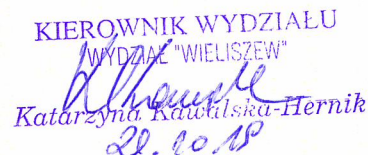 KIEROWNIK WYDZIAŁU
WYDZIAŁ "WIELISZEW"
Katarzyna Kawalska-Hernik
28.10.18